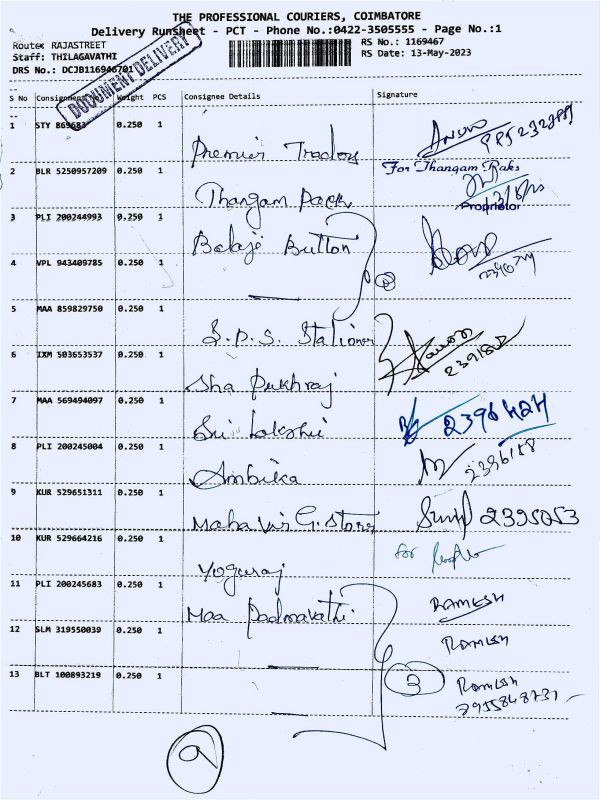 THE PROFESSIONAL COURIERS, COIMBATORE
Delivery Runsheet - PCT - Phone No.:0422-3505555 - Page No.:1
Route: RAJASTREET
RS No.: 1169467
Staff: THILAGAVATHI
RS Date: 13-May-2023
DRS No.: DCJB116946701
DOCUMENT DELIVERY
S No Consignment No Weight PCS Consignee Details Signature
1 STY 869683 0.250 1 Premier Traders
2 BLR 5250957209 0.250 1 Thangam Pack For Thangam Paks
Proprietor
3 PLI 200244993 0.250 1 Balaji Button
4 VPL 943409785 0.250 1
5 MAA 859829750 0.250 1 S.P.S. Stationer
6 IXM 503653537 0.250 1 Sha Pukhraj
7 MAA 569494097 0.250 1 Sri Lakshmi 2396424
8 PLI 200245004 0.250 1 Ambika 2396158
9 KUR 529651311 0.250 1 Mahavir G. Stores 2395053
10 KUR 529664216 0.250 1 Yoguraj for
11 PLI 200245683 0.250 1 Maa Padmavathi RAMESH
12 SLM 319550039 0.250 1 RAMESH
13 BLT 100893219 0.250 1 3 RAMESH
9